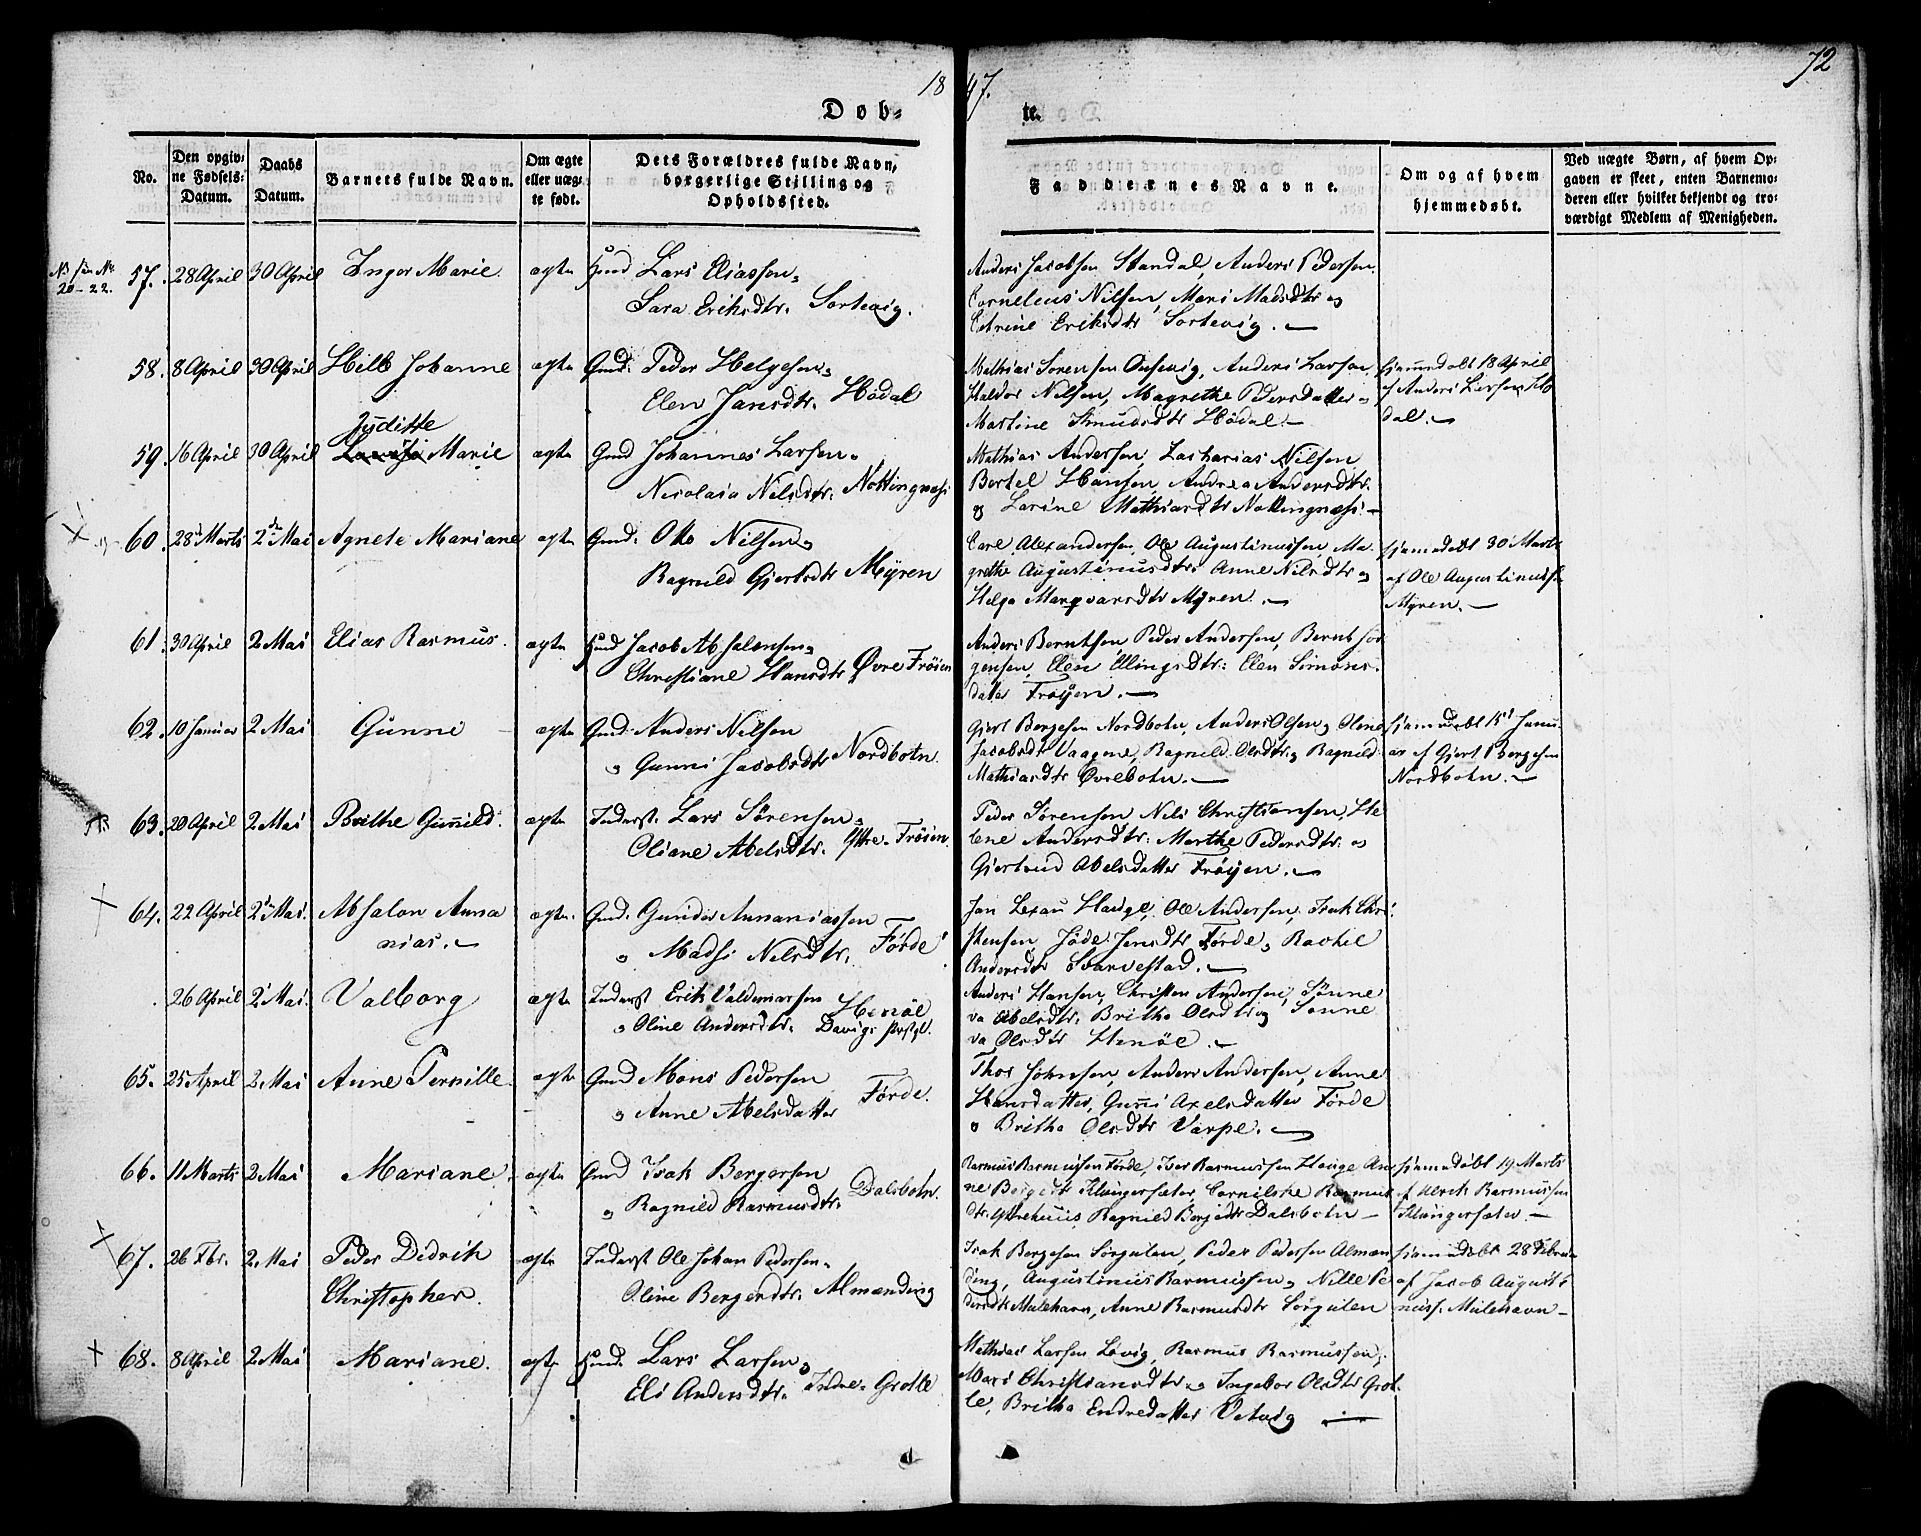 18
47.
72
Døb-
te.
No.
Den opgiv-
ne Fødsels-
Datum.
Daabs
Datum.
Barnets fulde Navn.
Om ægte
eller uæg-
te født.
Dets Forældres fulde Navn,
borgerlige Stilling og
Opholdssted.
Faddernes Navne.
Om og af hvem
hjemmedøbt.
Ved uægte Børn, af hvem Op-
gaven er skeet, enten Barnemo-
deren eller hvilket bekjendt og tro-
værdigt Medlem af Menigheden.
20-22.
57. 28 April 30 April Inger Marie ægte Huusd Lars Eliassen
Sara Eriksdtr. Sortevig.
Anders Jacobsen Standal, Anders Pedersen
Cornelius Nilsen, Mari Madsdtr og
Petrine Eriksdtr Sortevig.
58. 8 April 30 April Hille Johanne ægte Gmd. Peder Helgesen
Elen Jansdtr. Hödal
Mathias Sörensen, Anders Larsen,
Haldor Nilsen, Magrethe Pedersdatter og
Martine Knudsdtr Hödal.
hjemmedøbt 18 April
af Anders Larsen Hö-
dal.
59. 16 April 30 April Juditte
Marie ægte Gmd Johannes Larsen
Nicolaia Nilsdtr. Nottingnæs
Mathias Andersen, Zacharias Nilsen
Bertel Hansen Andrea Andersdtr.
og Larine Mathiasdtr Nottingnæs.
60. 28 Marts 2 Mai Agnete Mariane ægte Gmd. Otto Nilsen
Ragnild Gjertsdtr Myren
Carl Alexandersen, Ole Augustinussen, Ma-
grethe Augustinusdtr. Anne Nilsdtr og
Helga Marqvarsdtr Myren.
hjemmedøbt 30 Marts
af Ole Augustinussen
Myren.
61. 30 April 2 Mai Elias Rasmus. ægte Huusd Jacob Absalonsen
Christiane Hansdtr Øvre Fröien
Anders Berntsen, Peder Andersen, Bernt Jör-
gensen, Elen Ellingsdtr: Elen Simons-
datter Fröyen.
62. 10 Januar 2 Mai Gunni ægte Gmd. Anders Nilsen
og Gunni Jacobsdtr Nordbotn.
Gjert Börgesen Nordbotn, Anders Olsen og Oline
Jacobsdtr Vaagene, Ragnild Olsdtr og Ragnild
Mathiasdtr Øvrebotn.
hjemmedøbt 15 Janu-
ar af Gjert Börgesen
Nordbotn.
63. 20 April 2 Mai Brithe Gunnild. ægte Inderst. Lars Sörensen
Oliane Abelsdtr. Yttre Fröien.
Peder Sörensen Nils Christiansen, He-
lene Andersdtr: Marthe Pedersdtr. og
Gjertrud Abelsdatter Fröyen.
64. 22 April 2 Mai. Absalon Anna
nias. ægte. Gmd. Gunder Annaniassen
og Madsi Nilsdtr. Förde
Jan Lexau Hauge, Ole Andersen, Isak Chri-
stensen, Jöde Jensdtr Förde og Rachel
Andersdtr Svarvestad.
26 April 2 Mai. Valborg ægte Inderst Erik Valdemarsen
og Oline Andersdtr. Henöe
Davigs Prstgl.
Anders Hansen, Christen Andersen, Sönne
va Abelsdtr. Britha Olsdtr og Sönne
va Olsdtr Henöe.
65. 25 April 2 Mai Anne Pernille ægte Gmd Mons Pedersen
og Anne Abelsdatter Förde.
Thor Johnsen, Anders Andersen, Anne
Hansdatter, Gunni Axelsdatter Förde
og Britha Olsdtr Varpe.
66. 11 Marts 2 Mai Mariane. ægte Gmd Isak Bergersen
og Ragnild Rasmusdtr. Dalsbotn.
Rasmus Rasmussen Förde, Iver Rasmussen Hauge An-
ne Börgesdtr Klöngersæter, Cornilske Rasmus
dtr. Yttrehuus, Ragnild Bergesdtr Dalsbotn
hjemmedøbt 19 Marts
af Ulrik Rasmussen
Klöngersæter.
67. 26 Fbr. 2. Mai Peder Didrik
Christopher. ægte Inderst Ole Johan Pedersen
Oline Bergersdtr. Almending
Isak Bergesen Sörgulen, Peder Pedersen Almen
ding, Augustinus Rasmussen, Nille Pe
dersdtr Mulehavn, Anne Rasmusdtr Sörgulen
hjemmedøbt 28 Febru-
af Jacob Augusti
nuss. Mulehavn
68. 8 April 2 Mai Mariane. ægte Huusd. Lars Larsen
Eli Andersdtr. Indre Grotle
Mathias Larsen Levig, Rasmus Rasmussen,
Mari Christiansdtr. og Ingebor Olsdtr Grot-
le, Britha Endredatter Vetvig